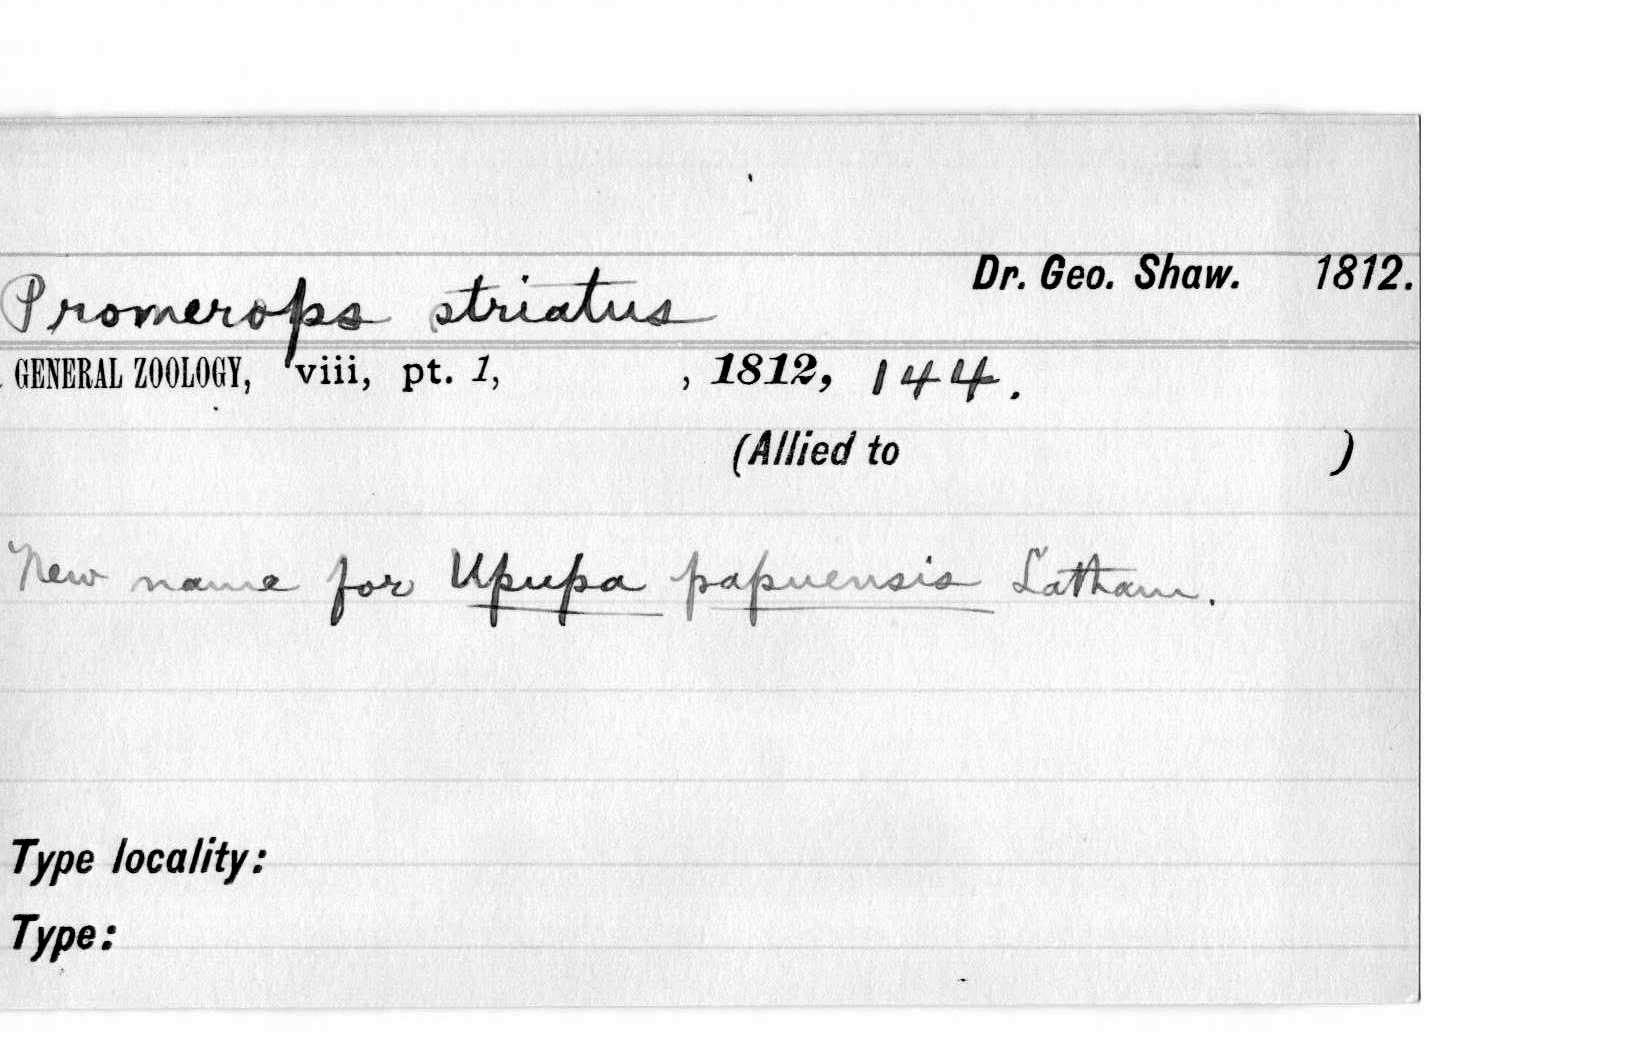 Dr. Geo. Shaw. 1812.
Promerops striatus
GENERAL ZOOLOGY, viii, pt. 1, , 1812, 144.
(Allied to )
New name for Upupa papuensis Latham.
Type locality:
Type: